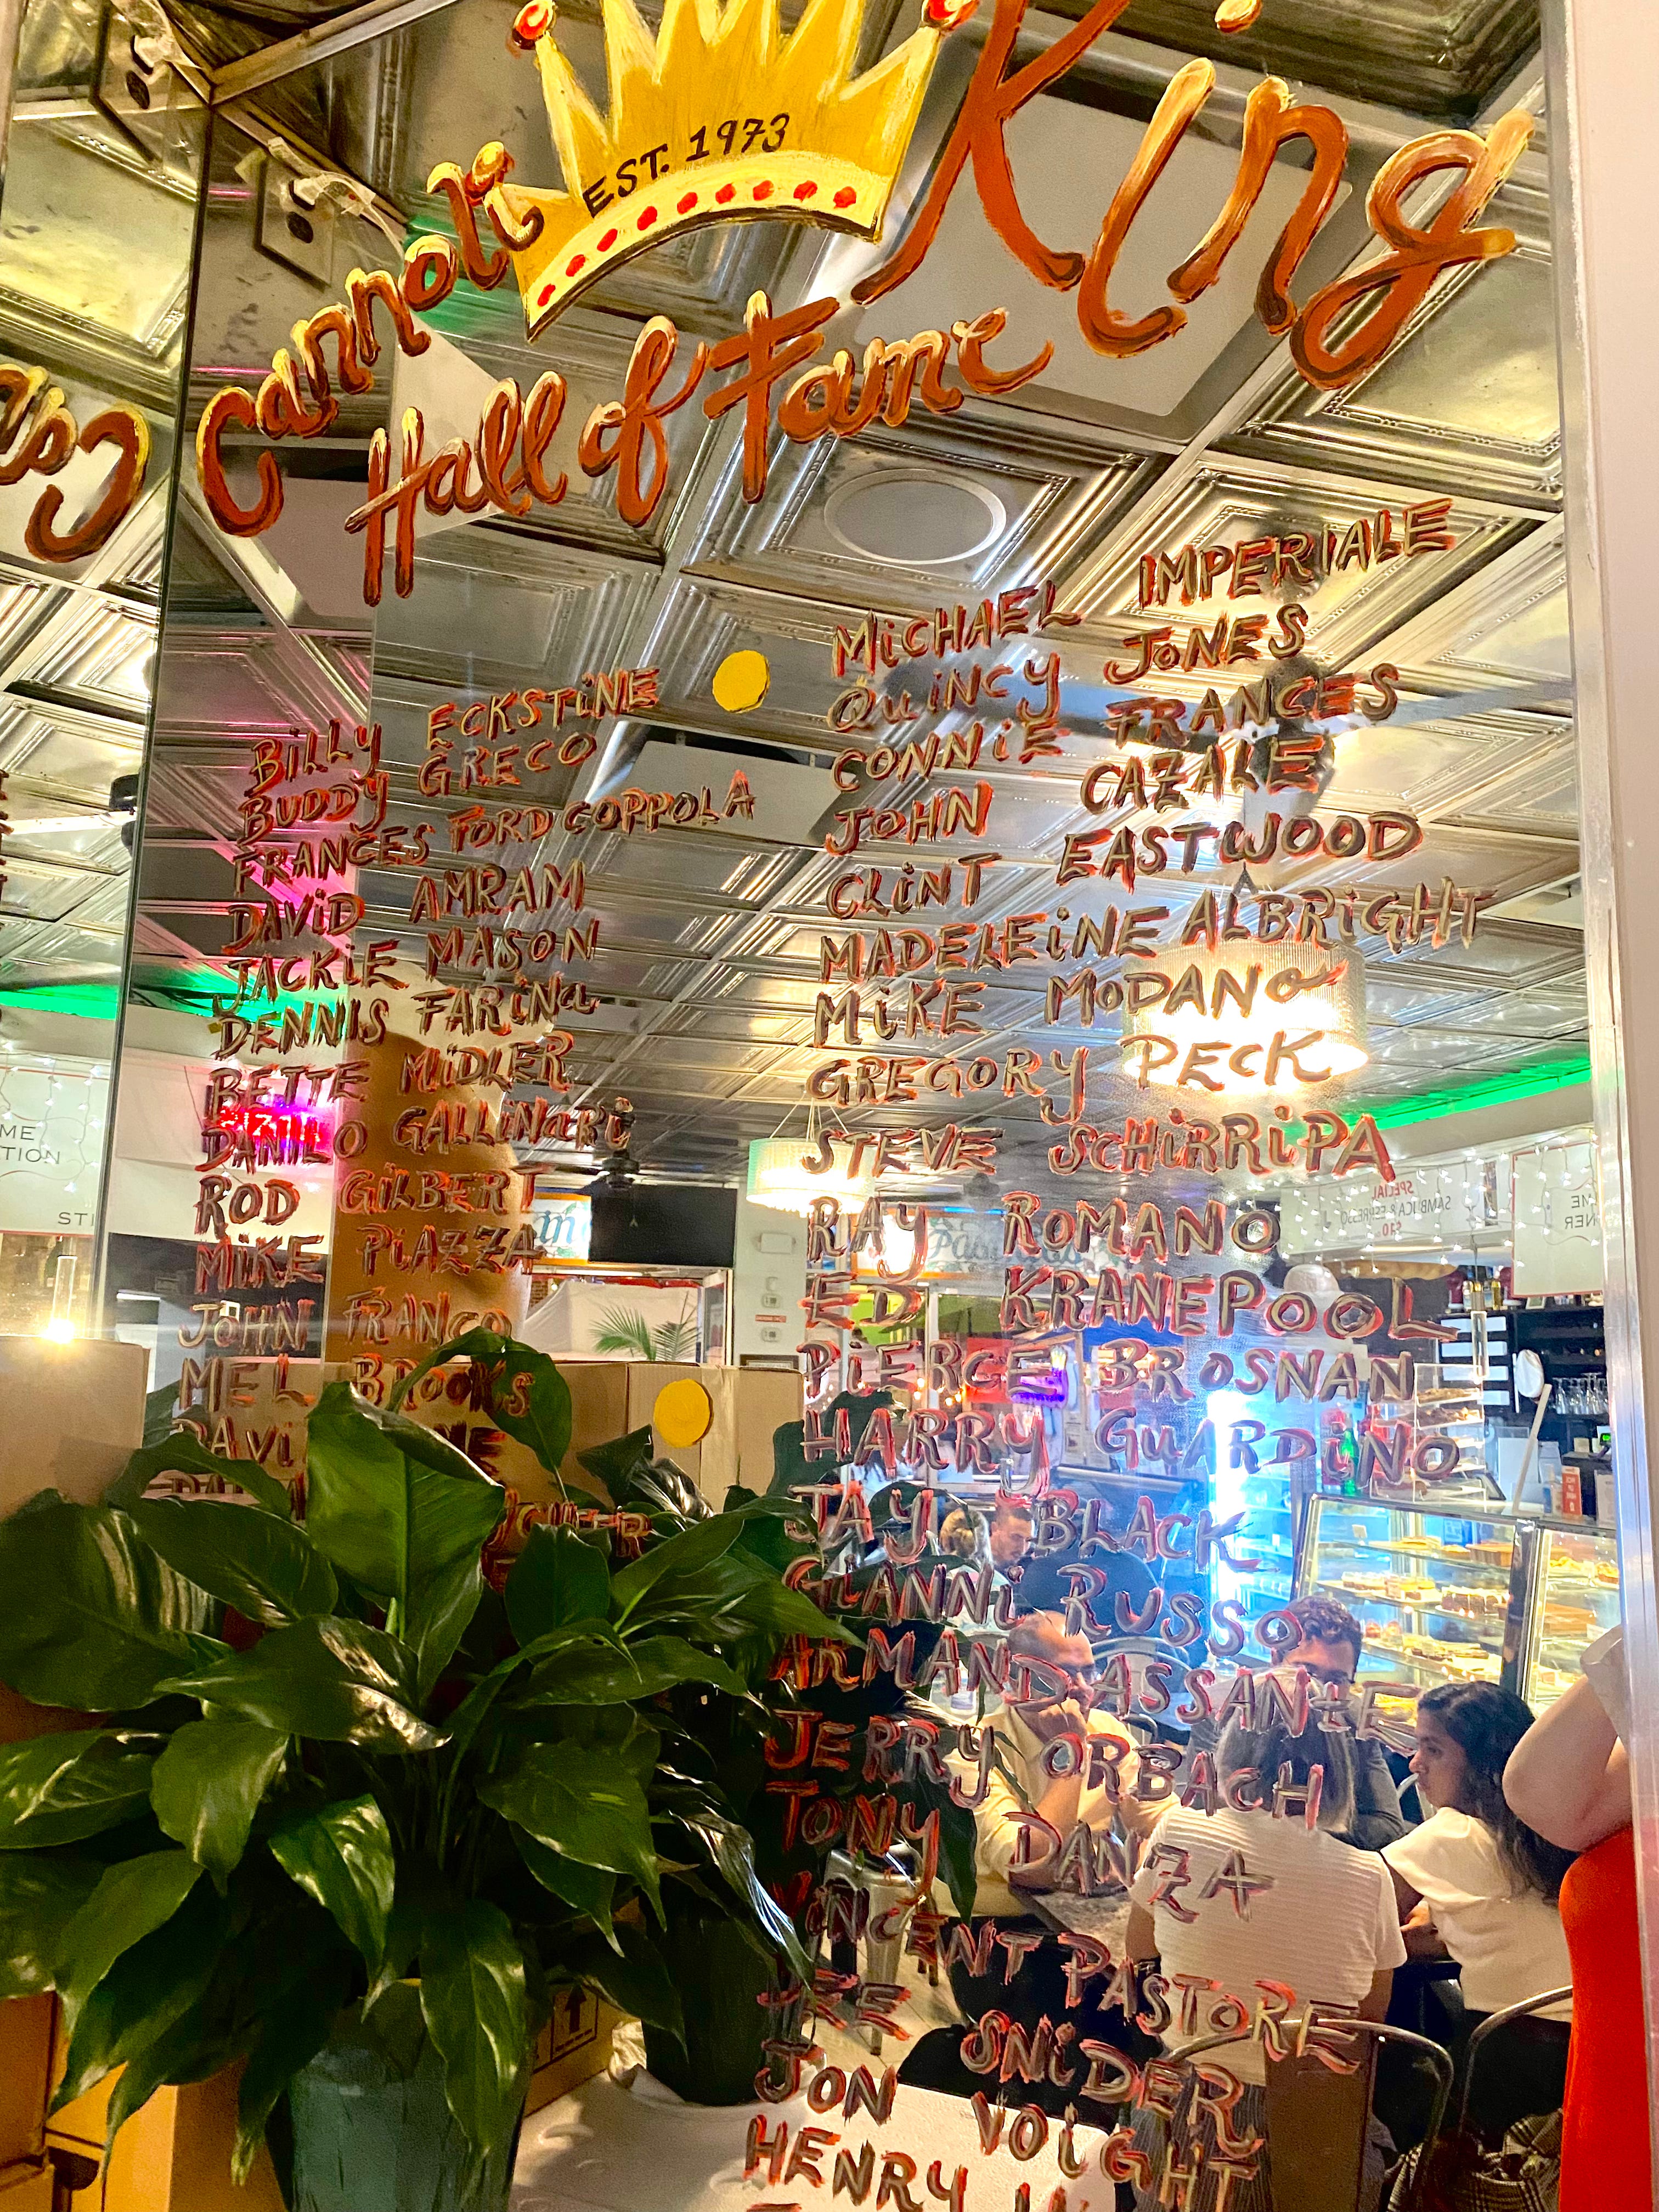 Cannoli King
EST. 1973
Hall of Fame
BILLY ECKSTINE
BUDDY GRECO
FRANCES FORD COPPOLA
DAVID AMRAM
JACKIE MASON
DENNIS FARINA
BETTE MIDLER
DANILO GALLINARI
ROD GILBERT
MIKE PIAZZA
JOHN FRANCO
MEL BROOKS
MICHAEL IMPERIALE
QUINCY JONES
CONNIE FRANCES
JOHN CAZALE
CLINT EASTWOOD
MADELEINE ALBRIGHT
MIKE MODANO
GREGORY PECK
STEVE SCHIRRIPA
RAY ROMANO
ED KRANEPOOL
PIERCE BROSNAN
HARRY GUARDINO
JAY BLACK
GIANNI RUSSO
ARMAND ASSANTE
JERRY ORBACH
TONY DANZA
VINCENT PASTORE
SNIDER
JON VOIGHT
HENRY
SPECIAL
SAMBUCA & ESPRESSO
$10